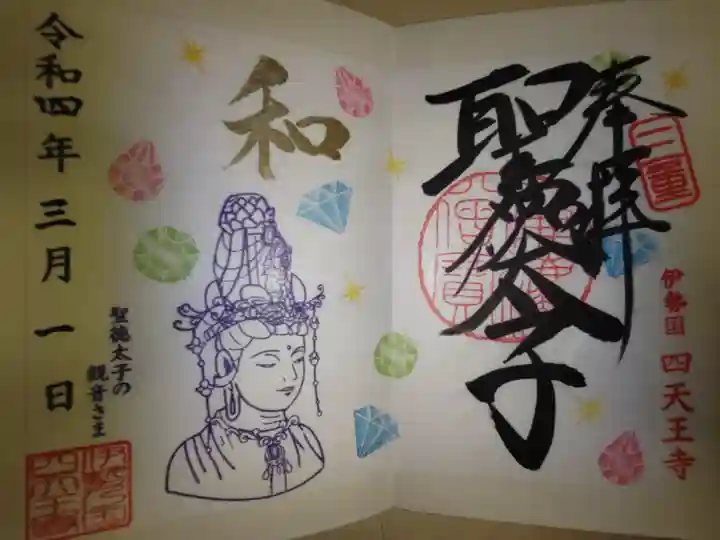 奉拝
三重
聖徳太子
伊勢国 四天王寺
和
聖徳太子の
観音さま
令和四年三月一日